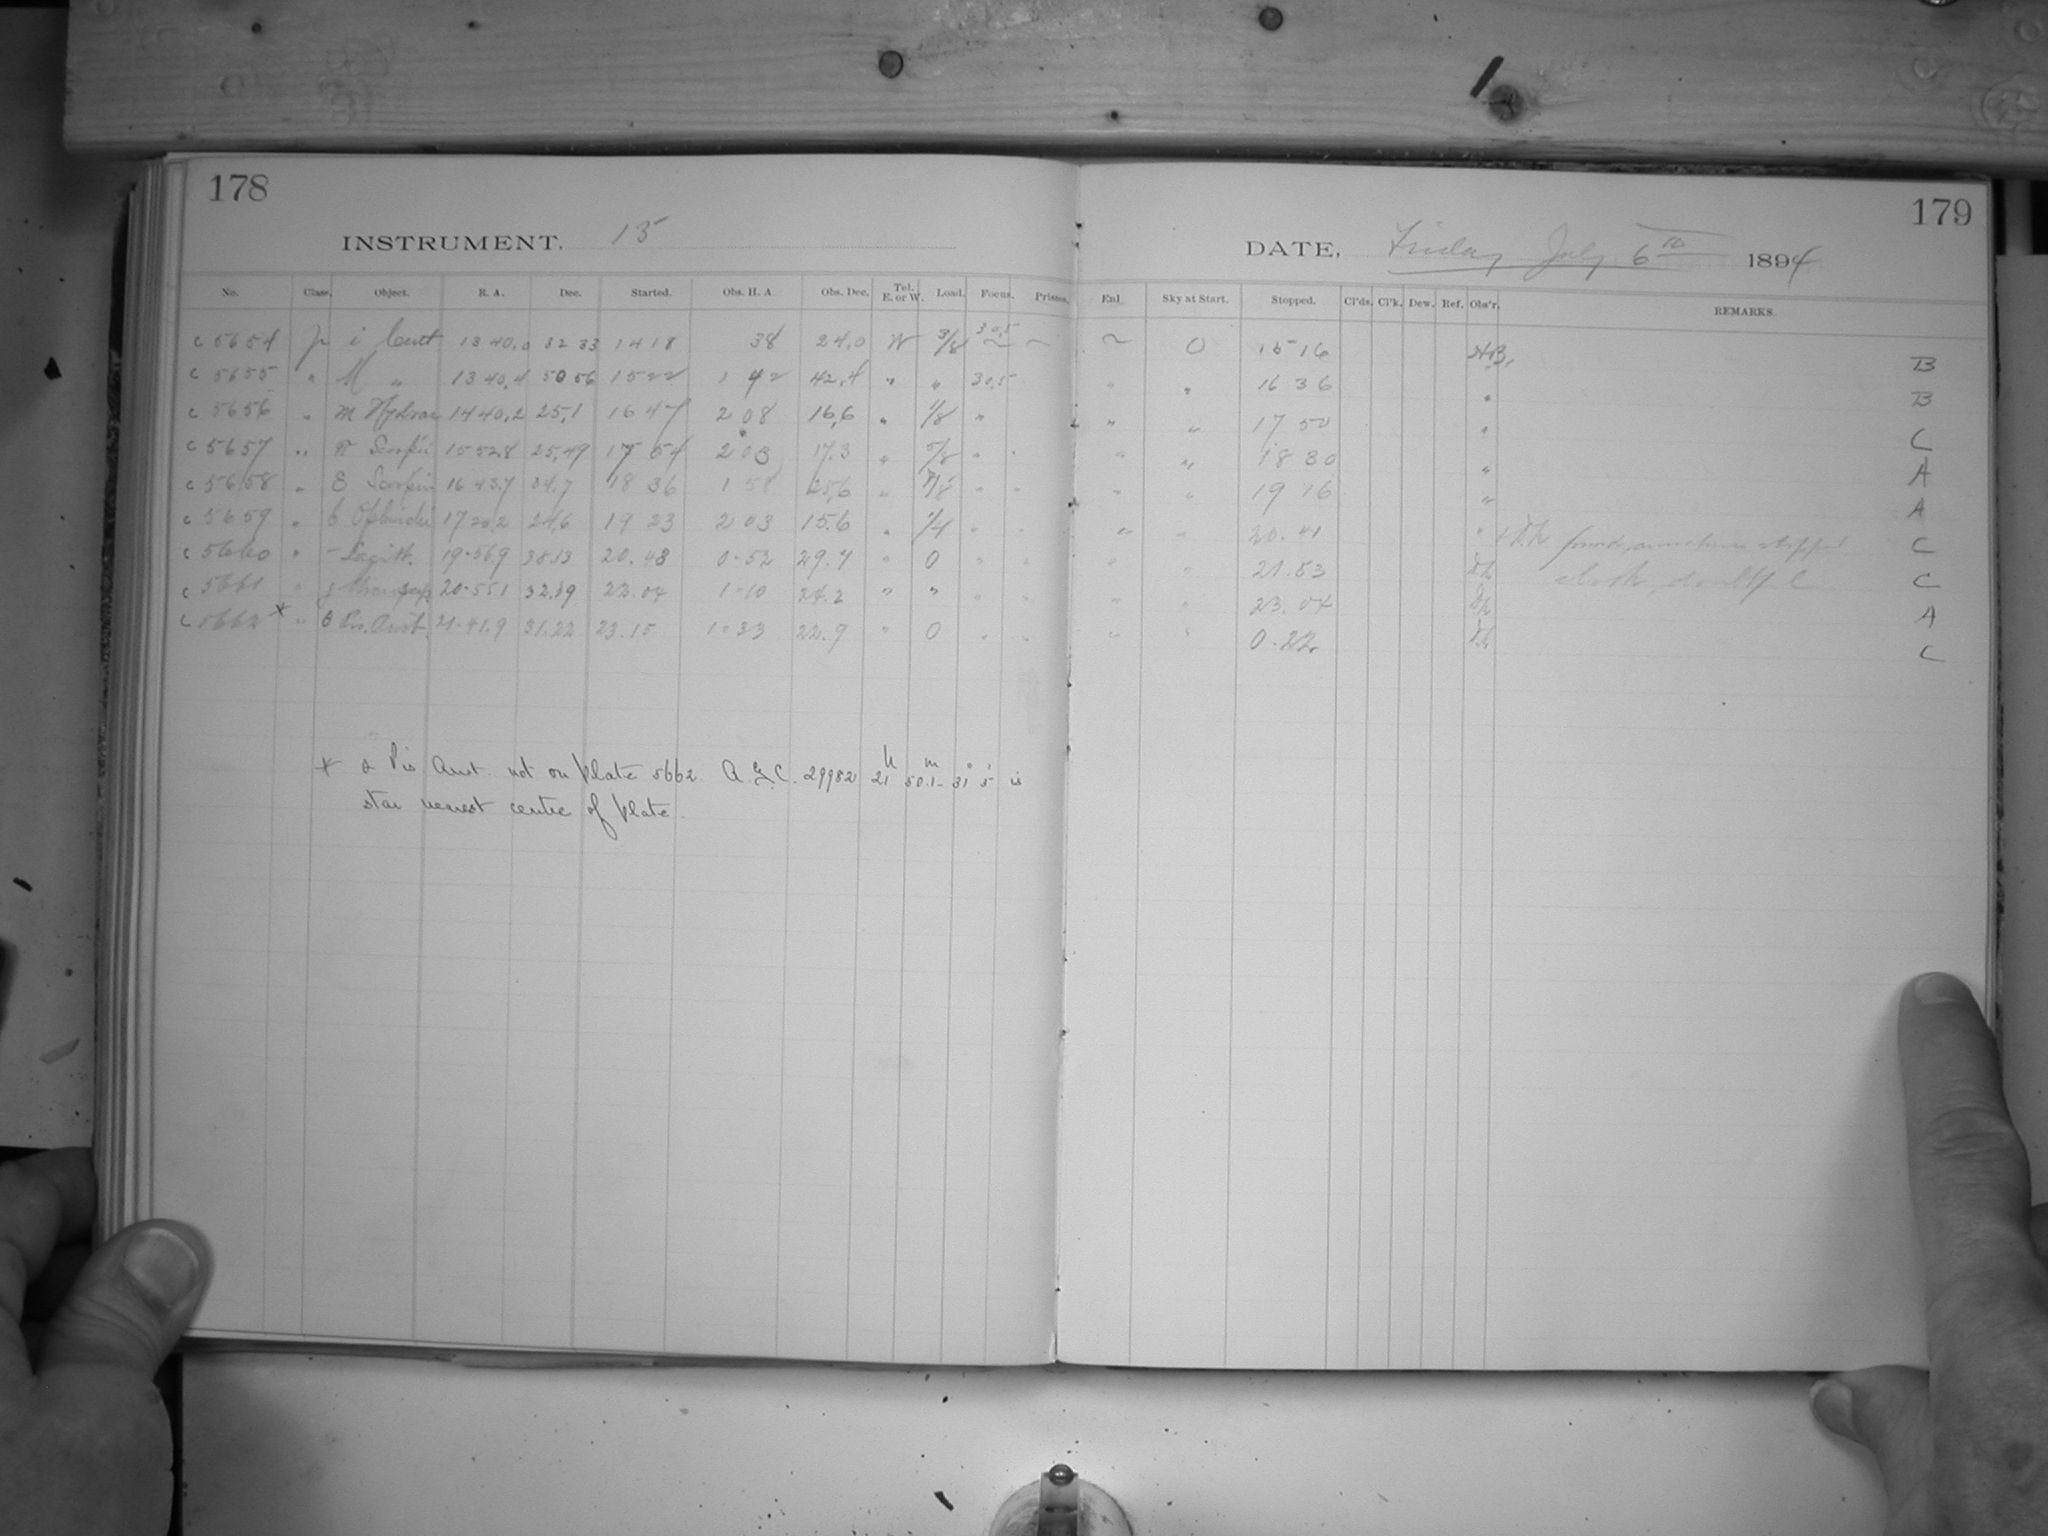 178
179
INSTRUMENT. 13
DATE, Friday July 6th 1894
No. Class. Object. R. A. Dec. Started. Obs. H. A. Obs. Dec. Tel. E. or W. Load. Focus. Prisms. Enl. Sky at Start. Stopped. Cl'ds. Cl'k. Dew. Ref. Obs'r. REMARKS.
c 5654 p i Cent 13 40,0 32 33 14 18 38 24,0 W 3/8 30,5 ~ ~ 0 15 16 B
c 5655 " M " 13 40,4 50 56 15 22 1 42 42,4 " " 30,5 " " 16 36 " B
c 5656 " m Hydrae 14 40,2 25,1 16 47 2 08 16,6 " 1/8 " " " 17 50 " C
c 5657 " π Scorpii 15 52,8 25,49 17 54 2 03 17.3 " 5/8 " " " " 18 30 " A
c 5658 " Scorpii 16 43.7 34,7 18 36 1 58 25,6 " 7/8 " " " " 19 16 " A
c 5659 " Ophiuchi 17 20,2 24,6 19 23 2 03 15.6 " 1/4 " " " " 20.41 " found stopped C
c 5660 " - Sagitt. 19.56,9 38.13 20.48 0.52 29.4 " 0 " " " " 21.53 clock doubtful C
c 5661 " 20.55,1 32.39 22.04 1.10 24.2 " " " " " " 23.04 A
c 5662 * " θ Pis. Aust. 21.41.9 31.22 23.15 1.33 22.9 " 0 " " " " 0.22 C
* Pis. Aust. not on plate 5662. A.G.C. 29982 21h 50.1m - 31° 5' is
star nearest centre of plate.